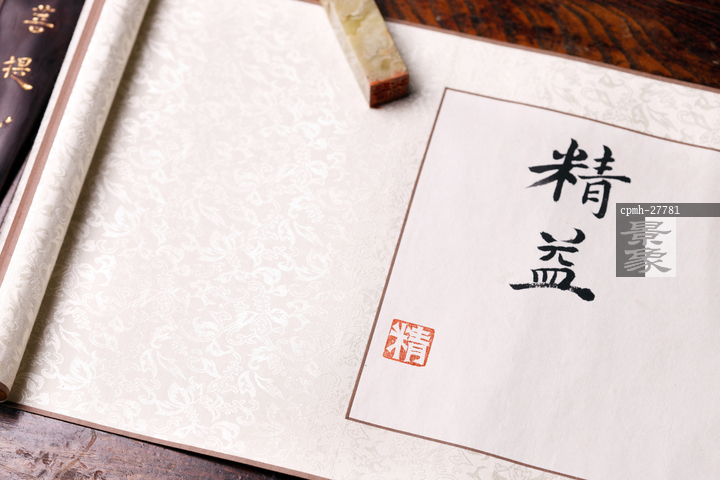 精益
精
菩提
cpmh-27781
景象